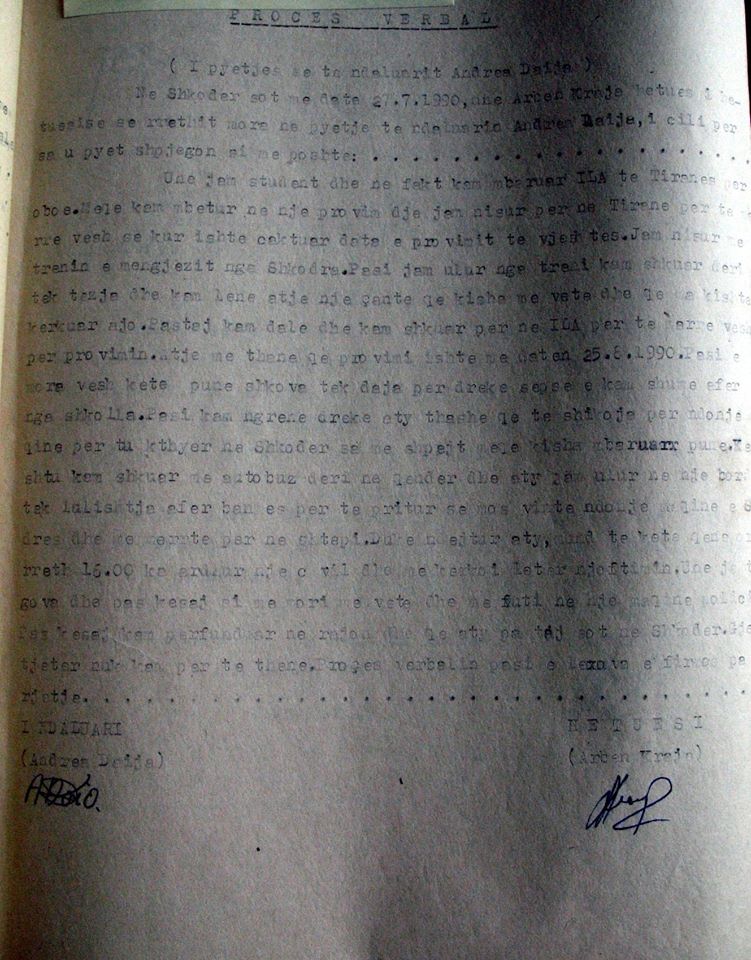 PROCES VERBAL
( I pyetjes se te ndaluarit Andrea Daija )
Ne Shkoder sot me date 27.7.1990, une Arben Kraja hetues i he-
tuesise se rrethit mora ne pyetje te ndaluarin Andrea Daija, i cili per
sa u pyet shpjegon si me poshte: . . . . . . . . . . . . . . . . . . . .
Une jam student dhe ne fakt kam mbaruar ILA te Tiranes per
oboe. Mele kam mbetur ne nje provim dje jam nisur per ne Tirane per te
rre vesh se kur ishte caktuar data e provimit te vjeshtes. Jam nisur me
trenin e mengjezit nga Shkodra. Pasi jam ulur nga treni kam shkuar deri
tek tezja dhe kam lene atje nje çante qe kisha me vete dhe qe ma kishte
kerkuar ajo. Pastaj kam dale dhe kam shkuar per ne ILA per te marre vesh
per provimin. Atje me thane qe provimi ishte me daten 25.8.1990. Pasi e
mora vesh kete pune shkova tek daja per dreke sepse e kam shume afer
nga shkolla. Pasi kam ngrene dreke aty thashe qe te shikoja per ndonje
qine per tu kthyer ne Shkoder sa me shpejt mele kisha mbaruarr pune. Ke
shtu kam shkuar me autobuz deri ne qender dhe aty jam ulur ne nje bor
tek lulishtja afer bankes per te pritur se mos vinte ndonje maqine e
dres dhe me merrte per ne shtepi. Duke ndejtur aty, mund te kete qene or
rreth 16.00 ka ardhur nje civil dhe me kerkoi leter njoftimin. Une ja t
gova dhe pas kesaj ai me mori me vete dhe me futi ne nje maqine polici
Pas kesaj kam perfunduar ne rajon dhe qe aty pa taj sot ne Shkoder. Gje
tjeter nuk kam per te thene. Proçes verbalin pasi e lexova e firmos pa
rjetje. . . . . . . . . . . . . . . . . . . . . . . . . . . . . . . . .
I NDALUARI HETUESI
(Andrea Daija) (Arben Kraja)